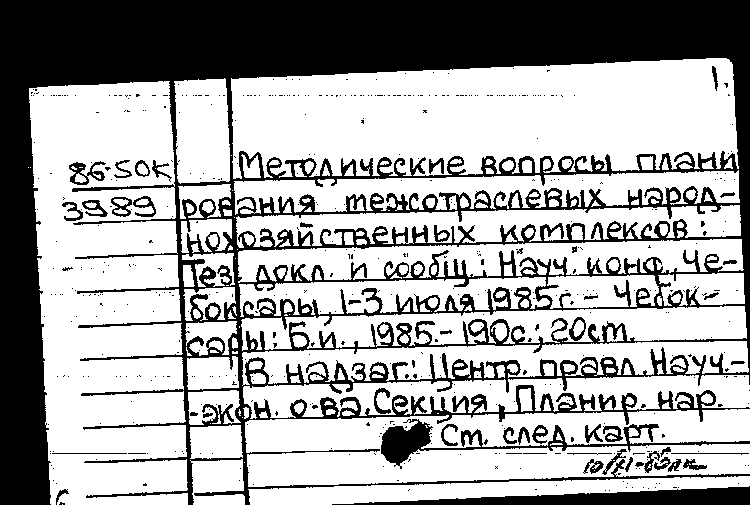 1.
86-50К Методические вопросы плани
3989 рования межотраслевых народ-
нохозяйственных комплексов:
Тез. докл. и сообщ.: Науч. конф., Че-
боксары, 1-3 июля 1985г. - Чебок-
сары: Б.и., 1985.-190с.; 20см.
В надзаг.: Центр. правл. Науч.-
-экон. о-ва. Секция, Планир. нар.
См. след. карт.